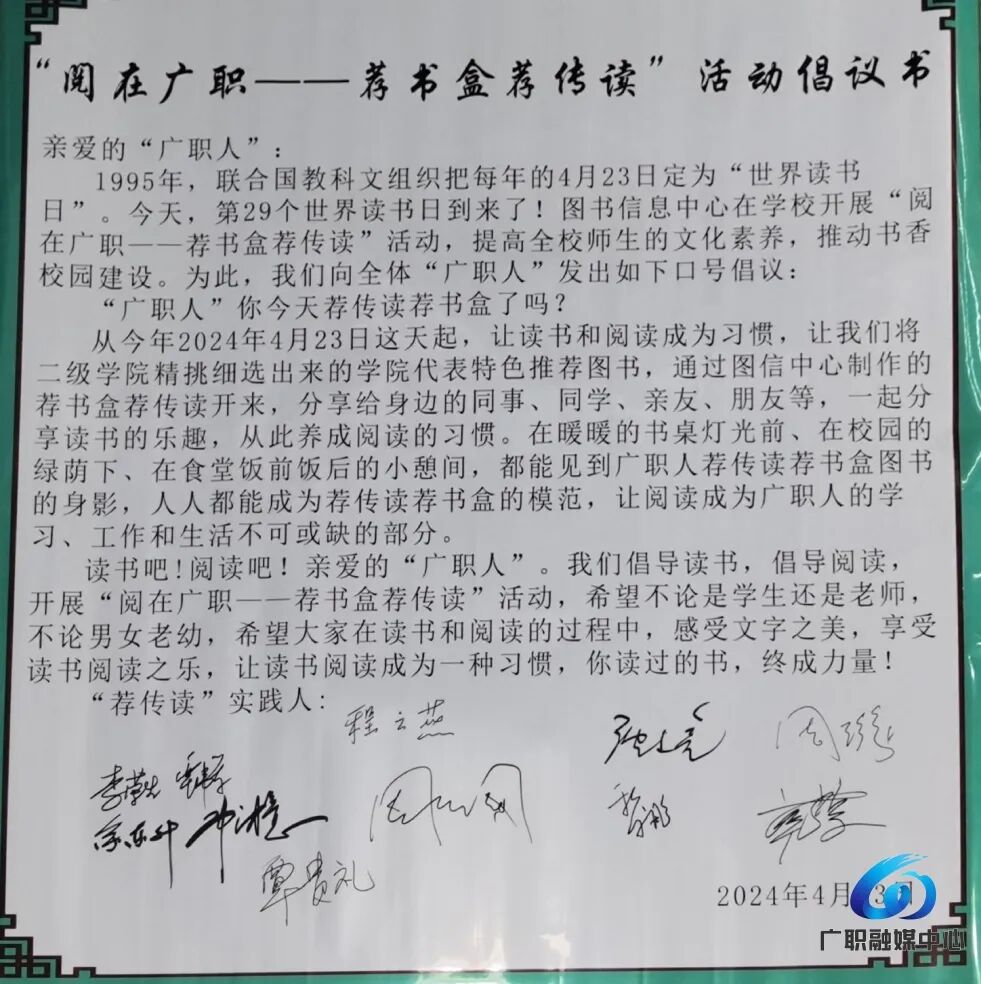 “阅在广职——荐书盒荐传读”活动倡议书
亲爱的“广职人”：
1995年，联合国教科文组织把每年的4月23日定为“世界读书
日”。今天，第29个世界读书日到来了！图书信息中心在学校开展“阅
在广职——荐书盒荐传读”活动，提高全校师生的文化素养，推动书香
校园建设。为此，我们向全体“广职人”发出如下口号倡议：
“广职人”你今天荐传读荐书盒了吗？
从今年2024年4月23日这天起，让读书和阅读成为习惯，让我们将
二级学院精挑细选出来的学院代表特色推荐图书，通过图信中心制作的
荐书盒荐传读开来，分享给身边的同事、同学、亲友、朋友等，一起分
享读书的乐趣，从此养成阅读的习惯。在暖暖的书桌灯光前、在校园的
绿荫下、在食堂饭前饭后的小憩间，都能见到广职人荐传读荐书盒图书
的身影，人人都能成为荐传读荐书盒的模范，让阅读成为广职人的学
习、工作和生活不可或缺的部分。
读书吧！阅读吧！亲爱的“广职人”。我们倡导读书，倡导阅读，
开展“阅在广职——荐书盒荐传读”活动，希望不论是学生还是老师，
不论男女老幼，希望大家在读书和阅读的过程中，感受文字之美，享受
读书阅读之乐，让读书阅读成为一种习惯，你读过的书，终成力量！
“荐传读”实践人：
程云燕
覃贵礼
2024年4月 3日
广职融媒中心